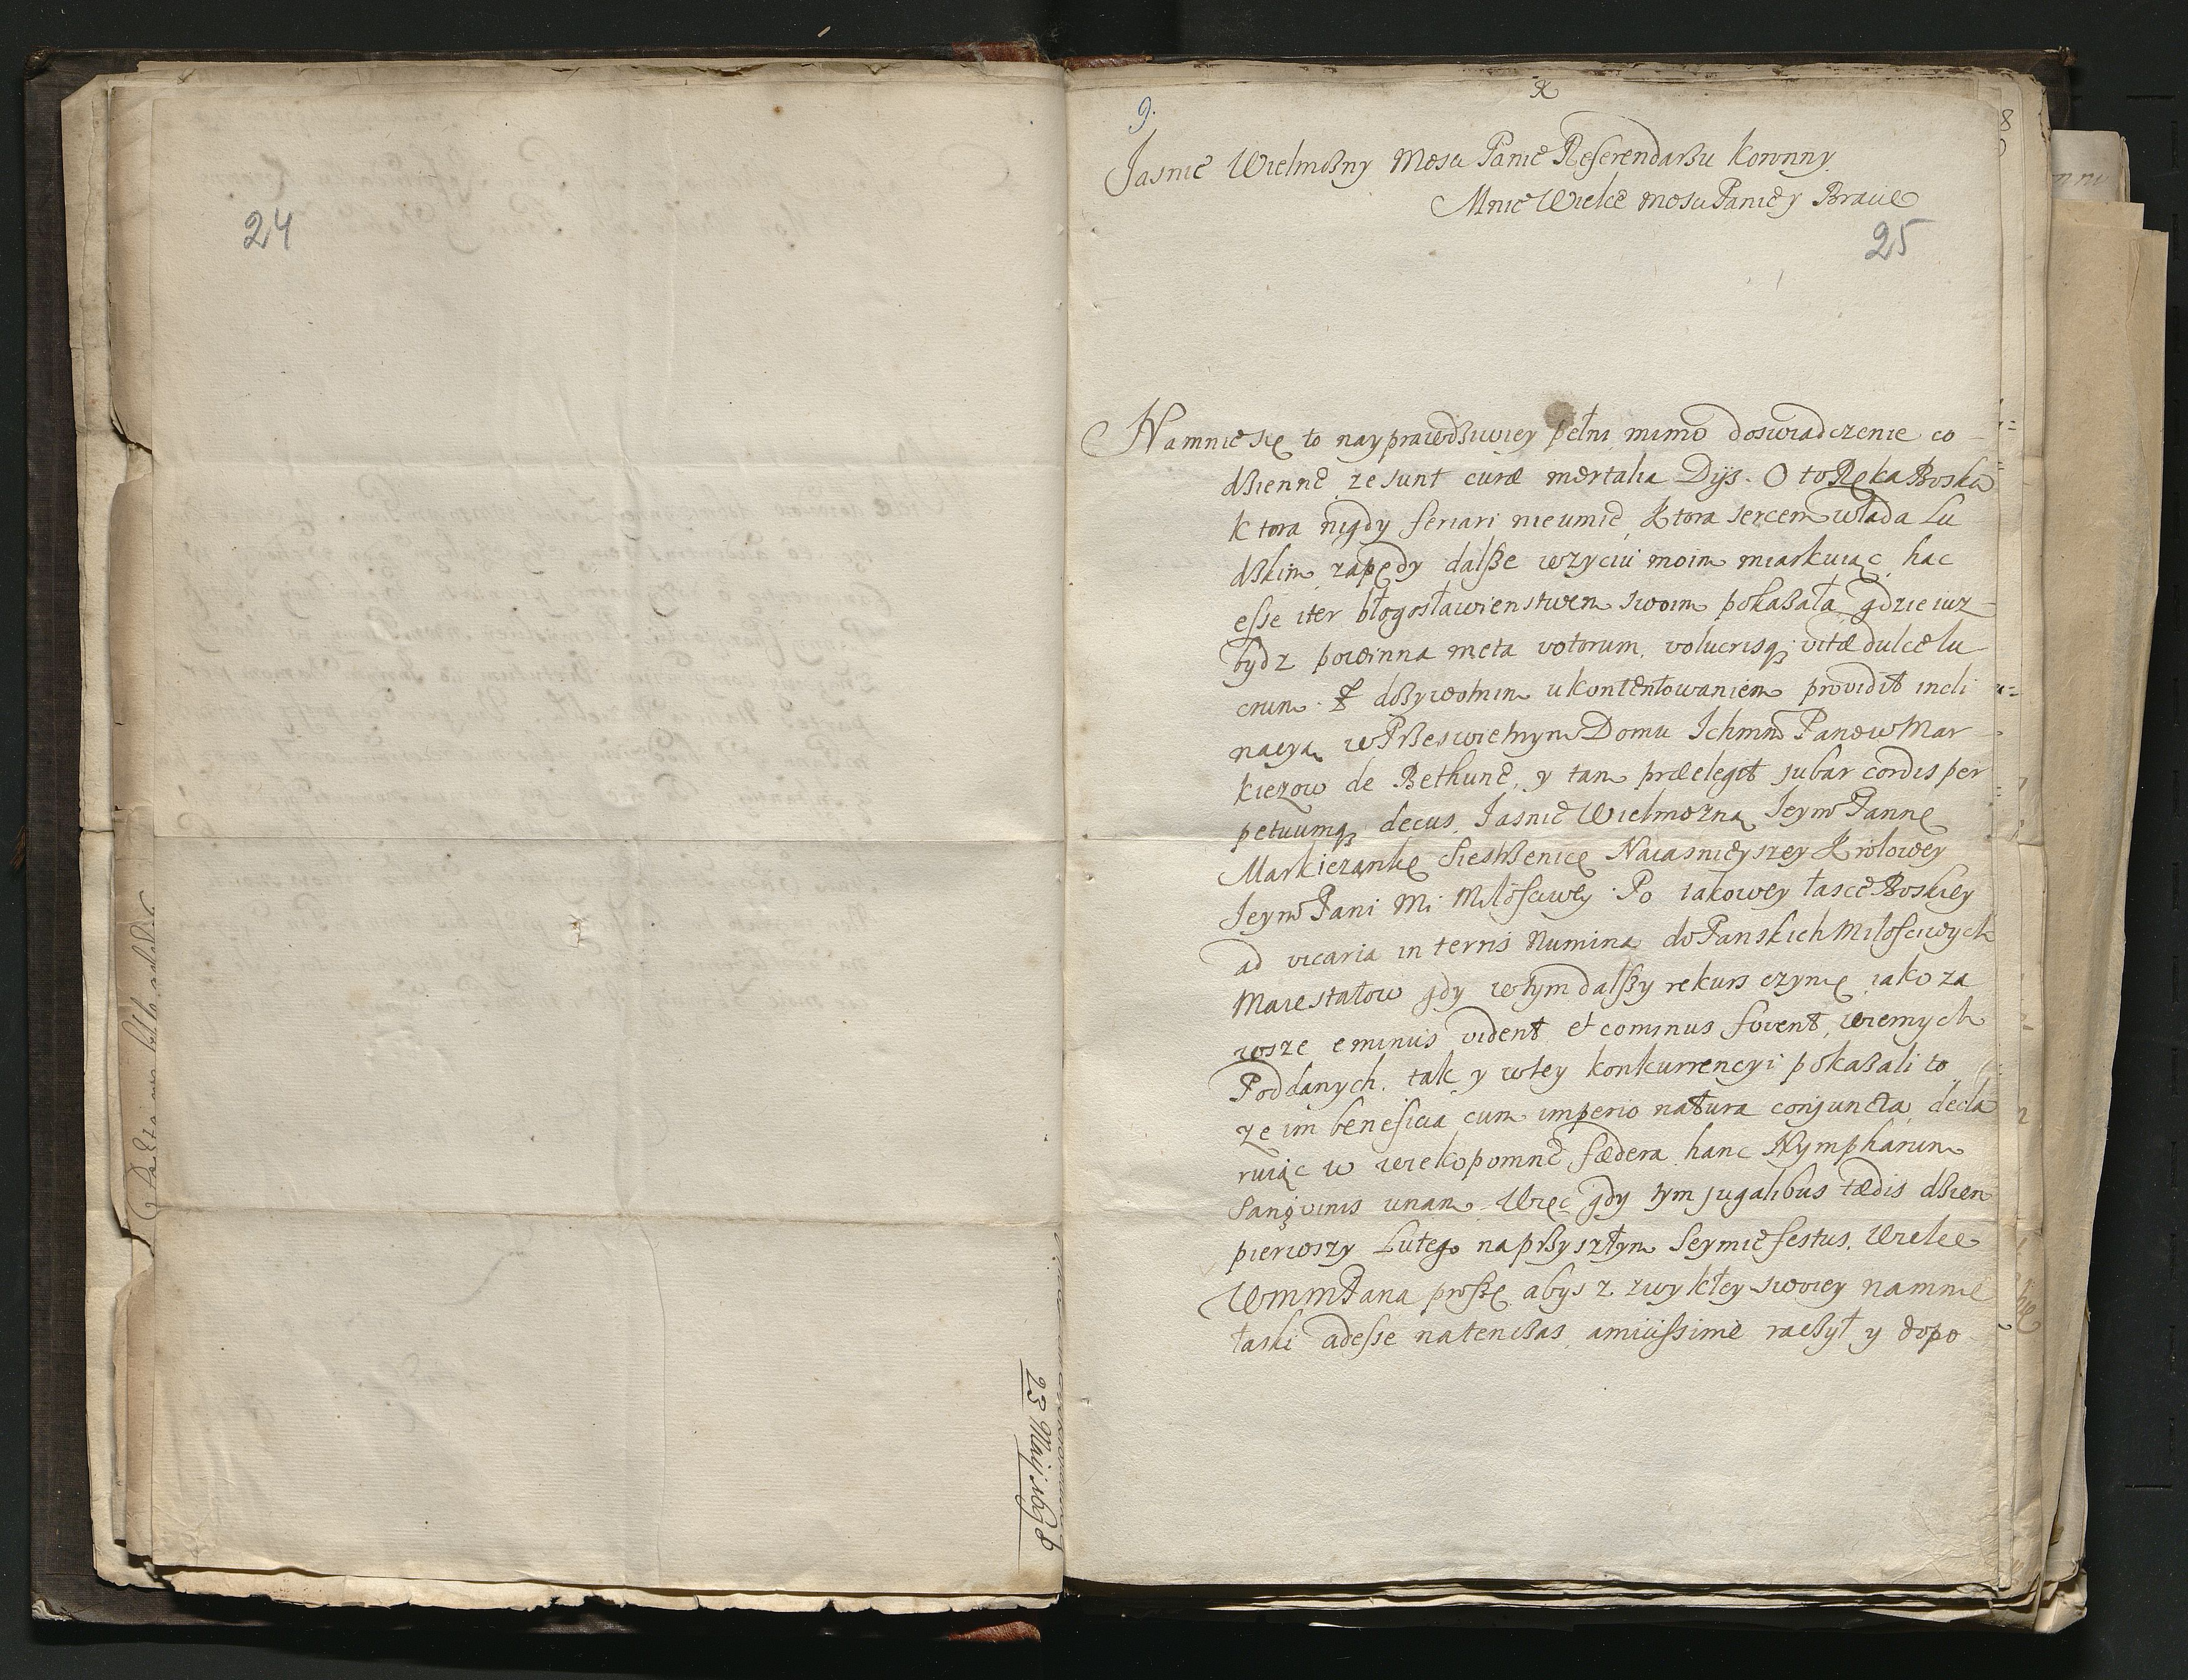 24
23 Maij 1698
9.
Jasnie Wielmożny Mosci Panie Referendarzu Koronny
Mnie Wielce mosci Panie y Bracie
25
Na mnie się to nayprawdziwiey pełni mimo doswiadczenie co
dzienne, ze sunt curæ mortalia Dijs. O to Ręka Boska
ktora nigdy feriari nieumie, ktora sercem włada Lu
dzkim, zapędy dalsze w zyciu moim miarkuiąc, hac
esse iter błogosławienstwem swoim pokazała, gdzie iuz
bydz powinna meta votorum, volucrisq; vitæ dulce lu
crum. Z dozywotnim ukontentowaniem providit incli
nacyą w Przeswietnym Domu Ichmm Panow Mar
kiezow de Bethune, y tam præelegit jubar cordis per
petuumq; decus, Jasnie Wielmozną Jeym Pannę
Markiezankę Siestrzenicę Naiasnieyszey Krolowey
Jeym Pani Mi Miłosciwey. Po takowey łasce Boskiey
ad vicaria in terris Numina do Panskich Miłosciwych
Maiestatow gdy w tym dalszy rekurs czynię, iako za
wsze eminus vident et cominus fovent, wiernych
Poddanych, tak y w tey konkurrencyi pokazali to
ze im beneficia cum imperio natura conjuncta, decla
ruiąc w wiekopomne fœdera hanc Nympharum
Sangvinis unam. Więc gdy tym jugalibus tædis dzien
pierwszy Lutego na przyszłym Seymie festus, Wielce
WmmPana proszę abys z zwykłey swoiey na mnie
łaski adesse natenczas amicissime raczył y dopo